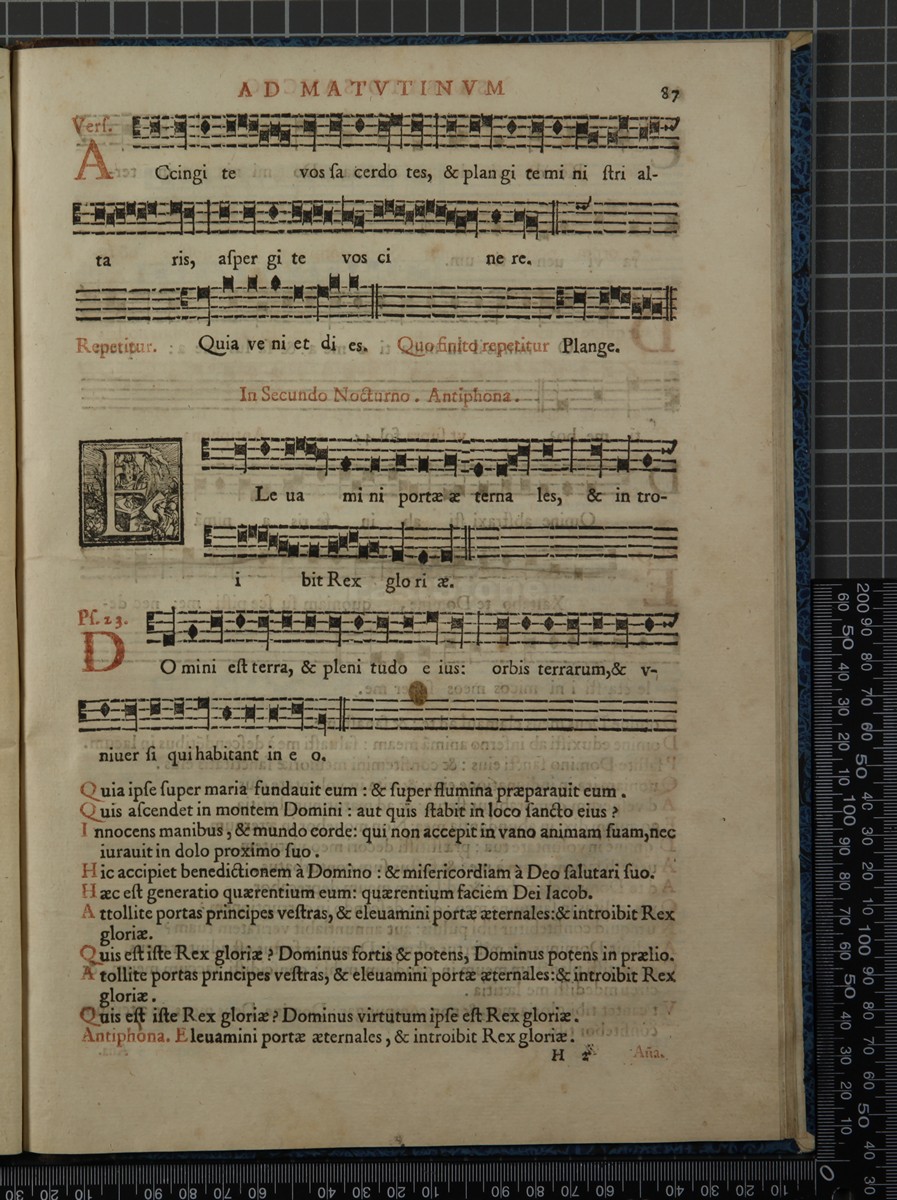 AD MATVTINVM 87
Verſ.
A Ccingi te vos ſa cerdo tes, & plan gi te mi ni ſtri al-
ta ris, aſper gi te vos ci ne re.
Repetitur. Quia ve ni et di es. Quo finito repetitur Plange.
In Secundo Nocturno. Antiphona.
E Le ua mi ni portæ æ terna les, & in tro-
i bit Rex glo ri æ.
Pſ. 23.
D O mini eſt terra, & pleni tudo e ius: orbis terrarum,& v-
niuer ſi qui habitant in e o.
Quia ipſe ſuper maria fundauit eum : & ſuper flumina præparauit eum .
Quis aſcendet in montem Domini : aut quis ſtabit in loco ſancto eius ?
Innocens manibus , & mundo corde: qui non accepit in vano animam ſuam,nec
iurauit in dolo proximo ſuo .
Hic accipiet benedictionem à Domino : & miſericordiam à Deo ſalutari ſuo.
Hæc eſt generatio quærentium eum: quærentium faciem Dei Iacob.
Attollite portas principes veſtras, & eleuamini portæ æternales:& introibit Rex
gloriæ.
Quis eſt iſte Rex gloriæ ? Dominus fortis & potens, Dominus potens in prælio.
Atollite portas principes veſtras, & eleuamini portæ æternales:& introibit Rex
gloriæ .
Quis eſt iſte Rex gloriæ ? Dominus virtutum ipſe eſt Rex gloriæ .
Antiphona. Eleuamini portæ æternales , & introibit Rex gloriæ.
H Aña.